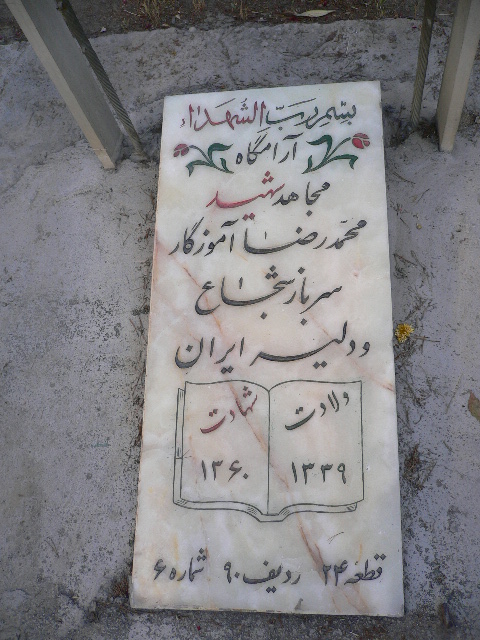 بسم رب الشّهداء
آرامگاه
مجاهد شهید
محمّدرضا آموزگار
سرباز شجاع
و دلیر ایران
ولادت
۱۳۳۹
شهادت
۱۳۶۰
قطعه ۲۴ ردیف ۹۰ شماره ۶